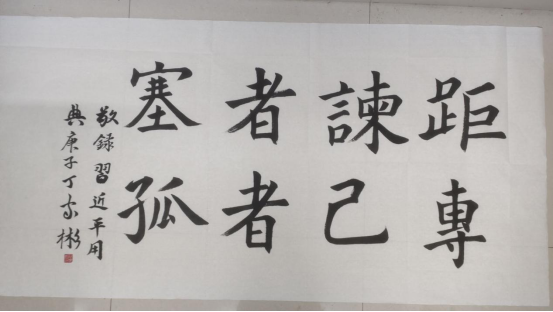 距諫者塞
專己者孤
敬録習近平用
典庚子丁家彬